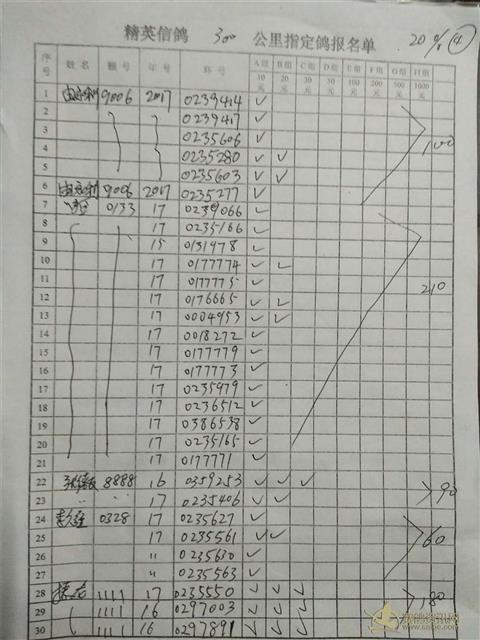 精英信鸽 300 公里指定鸽报名单 20% (4)
序号 姓名 棚号 年号 环号 A组10元 B组20元 C组30元 D组50元 E组100元 F组200元 G组500元 H组1000元
1 9006 2017 0239414 ✓
2 0239417 ✓
3 0235606 ✓ 100
4 0235280 ✓ ✓
5 0235603 ✓ ✓
6 9006 2017 0235277 ✓
7 0133 17 0239066 ✓
8 17 0235166 ✓
9 15 0131978 ✓
10 17 0177774 ✓ ✓
11 17 0177775 ✓
12 17 0176665 ✓ ✓ 210
13 17 0004953 ✓ ✓
14 17 0018272 ✓
15 17 0177779 ✓
16 17 0177773 ✓
17 17 0235979 ✓
18 17 0236512 ✓
19 17 0386538 ✓
20 17 0235165 ✓
21 17 0177771 ✓
22 8888 16 0359253 ✓ ✓ ✓
23 " " 17 0235406 ✓ ✓ >90
24 0328 17 0235627 ✓
25 17 0235561 ✓ ✓ 60
26 " 0235630 ✓
27 " 0235563 ✓
28 1111 17 0235550 ✓ ✓ ✓
29 1111 16 0297003 ✓ ✓ ✓ 180
30 1111 16 0297891 ✓ ✓ ✓